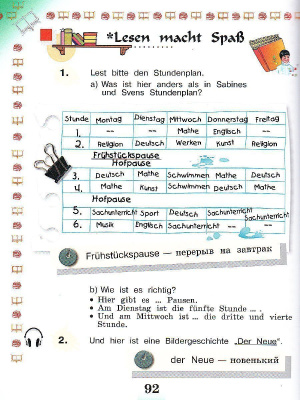 *Lesen macht Spaß
1. Lest bitte den Stundenplan.
a) Was ist hier anders als in Sabines
und Svens Stundenplan?
Stunde Montag Dienstag Mittwoch Donnerstag Freitag
1. -- -- Mathe Englisch --
2. Religion Deutsch Werken Kunst Religion
Frühstückspause
Hofpause
3. Deutsch Mathe Schwimmen Mathe Deutsch
4. Mathe Kunst Schwimmen Deutsch Mathe
Hofpause
5. Sachunterricht Sport Deutsch Sachunterricht Sachunterricht
6. Musik Englisch Sachunterricht -- --
Frühstückspause — перерыв на завтрак
b) Wie ist es richtig?
• Hier gibt es ... Pausen.
• Am Dienstag ist die fünfte Stunde ... .
• Und am Mittwoch ist ... die dritte und vierte
Stunde.
2. Und hier ist eine Bildergeschichte „Der Neue".
der Neue — новенький
92